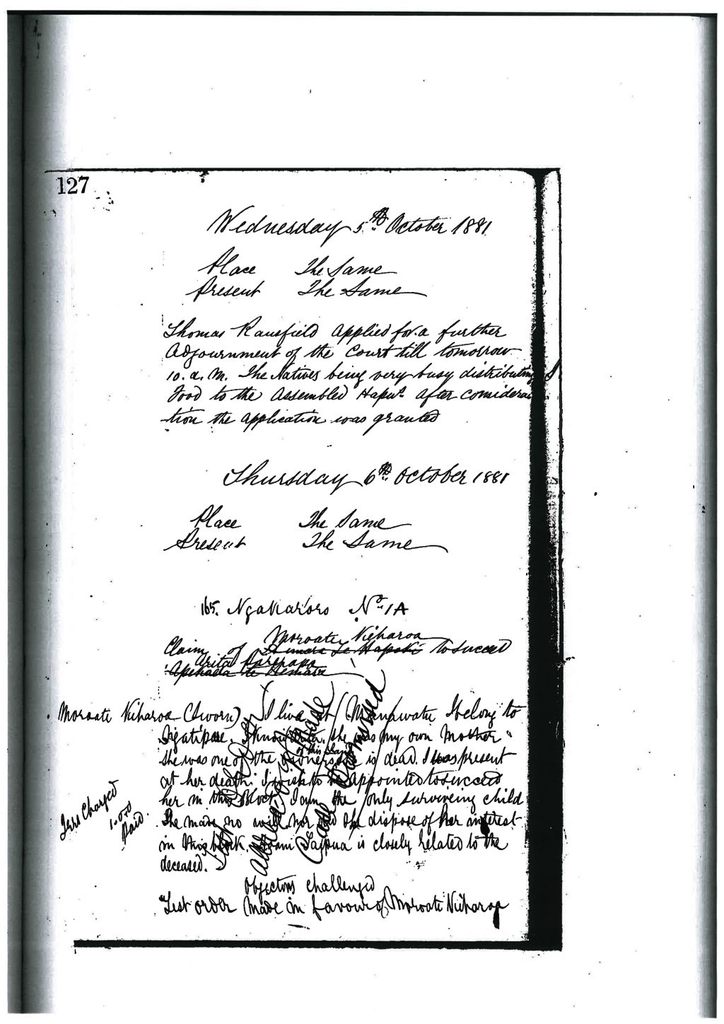 127
Wednesday 5th October 1881
Place The Same
Present The Same
Thomas Ransfield applied for a further
Adjournment of the Court till tomorrow
10. a. m. The Natives being very busy distributing
food to the assembled Hapus. after considera
tion the application was granted
Thursday 6th October 1881
Place The Same
Present The Same
165. Ngakaroro No 1A
Moroati Kiharoa
Claim of to succeed
Moroati Kiharoa (Sworn) I live at Manawatu I belong to
she was my own Mother
She was one of the owners of this is dead. I was present
at her death. I wish to be appointed to succeed
her in this Block I am the only surviving child
She made no will nor did she dispose of her interest
in this block. is closely related to the
deceased.
Case Dismissed
Fees Charged
1.0.0
Paid.
Objectors challenged
made in favour of Moroati Kiharoa